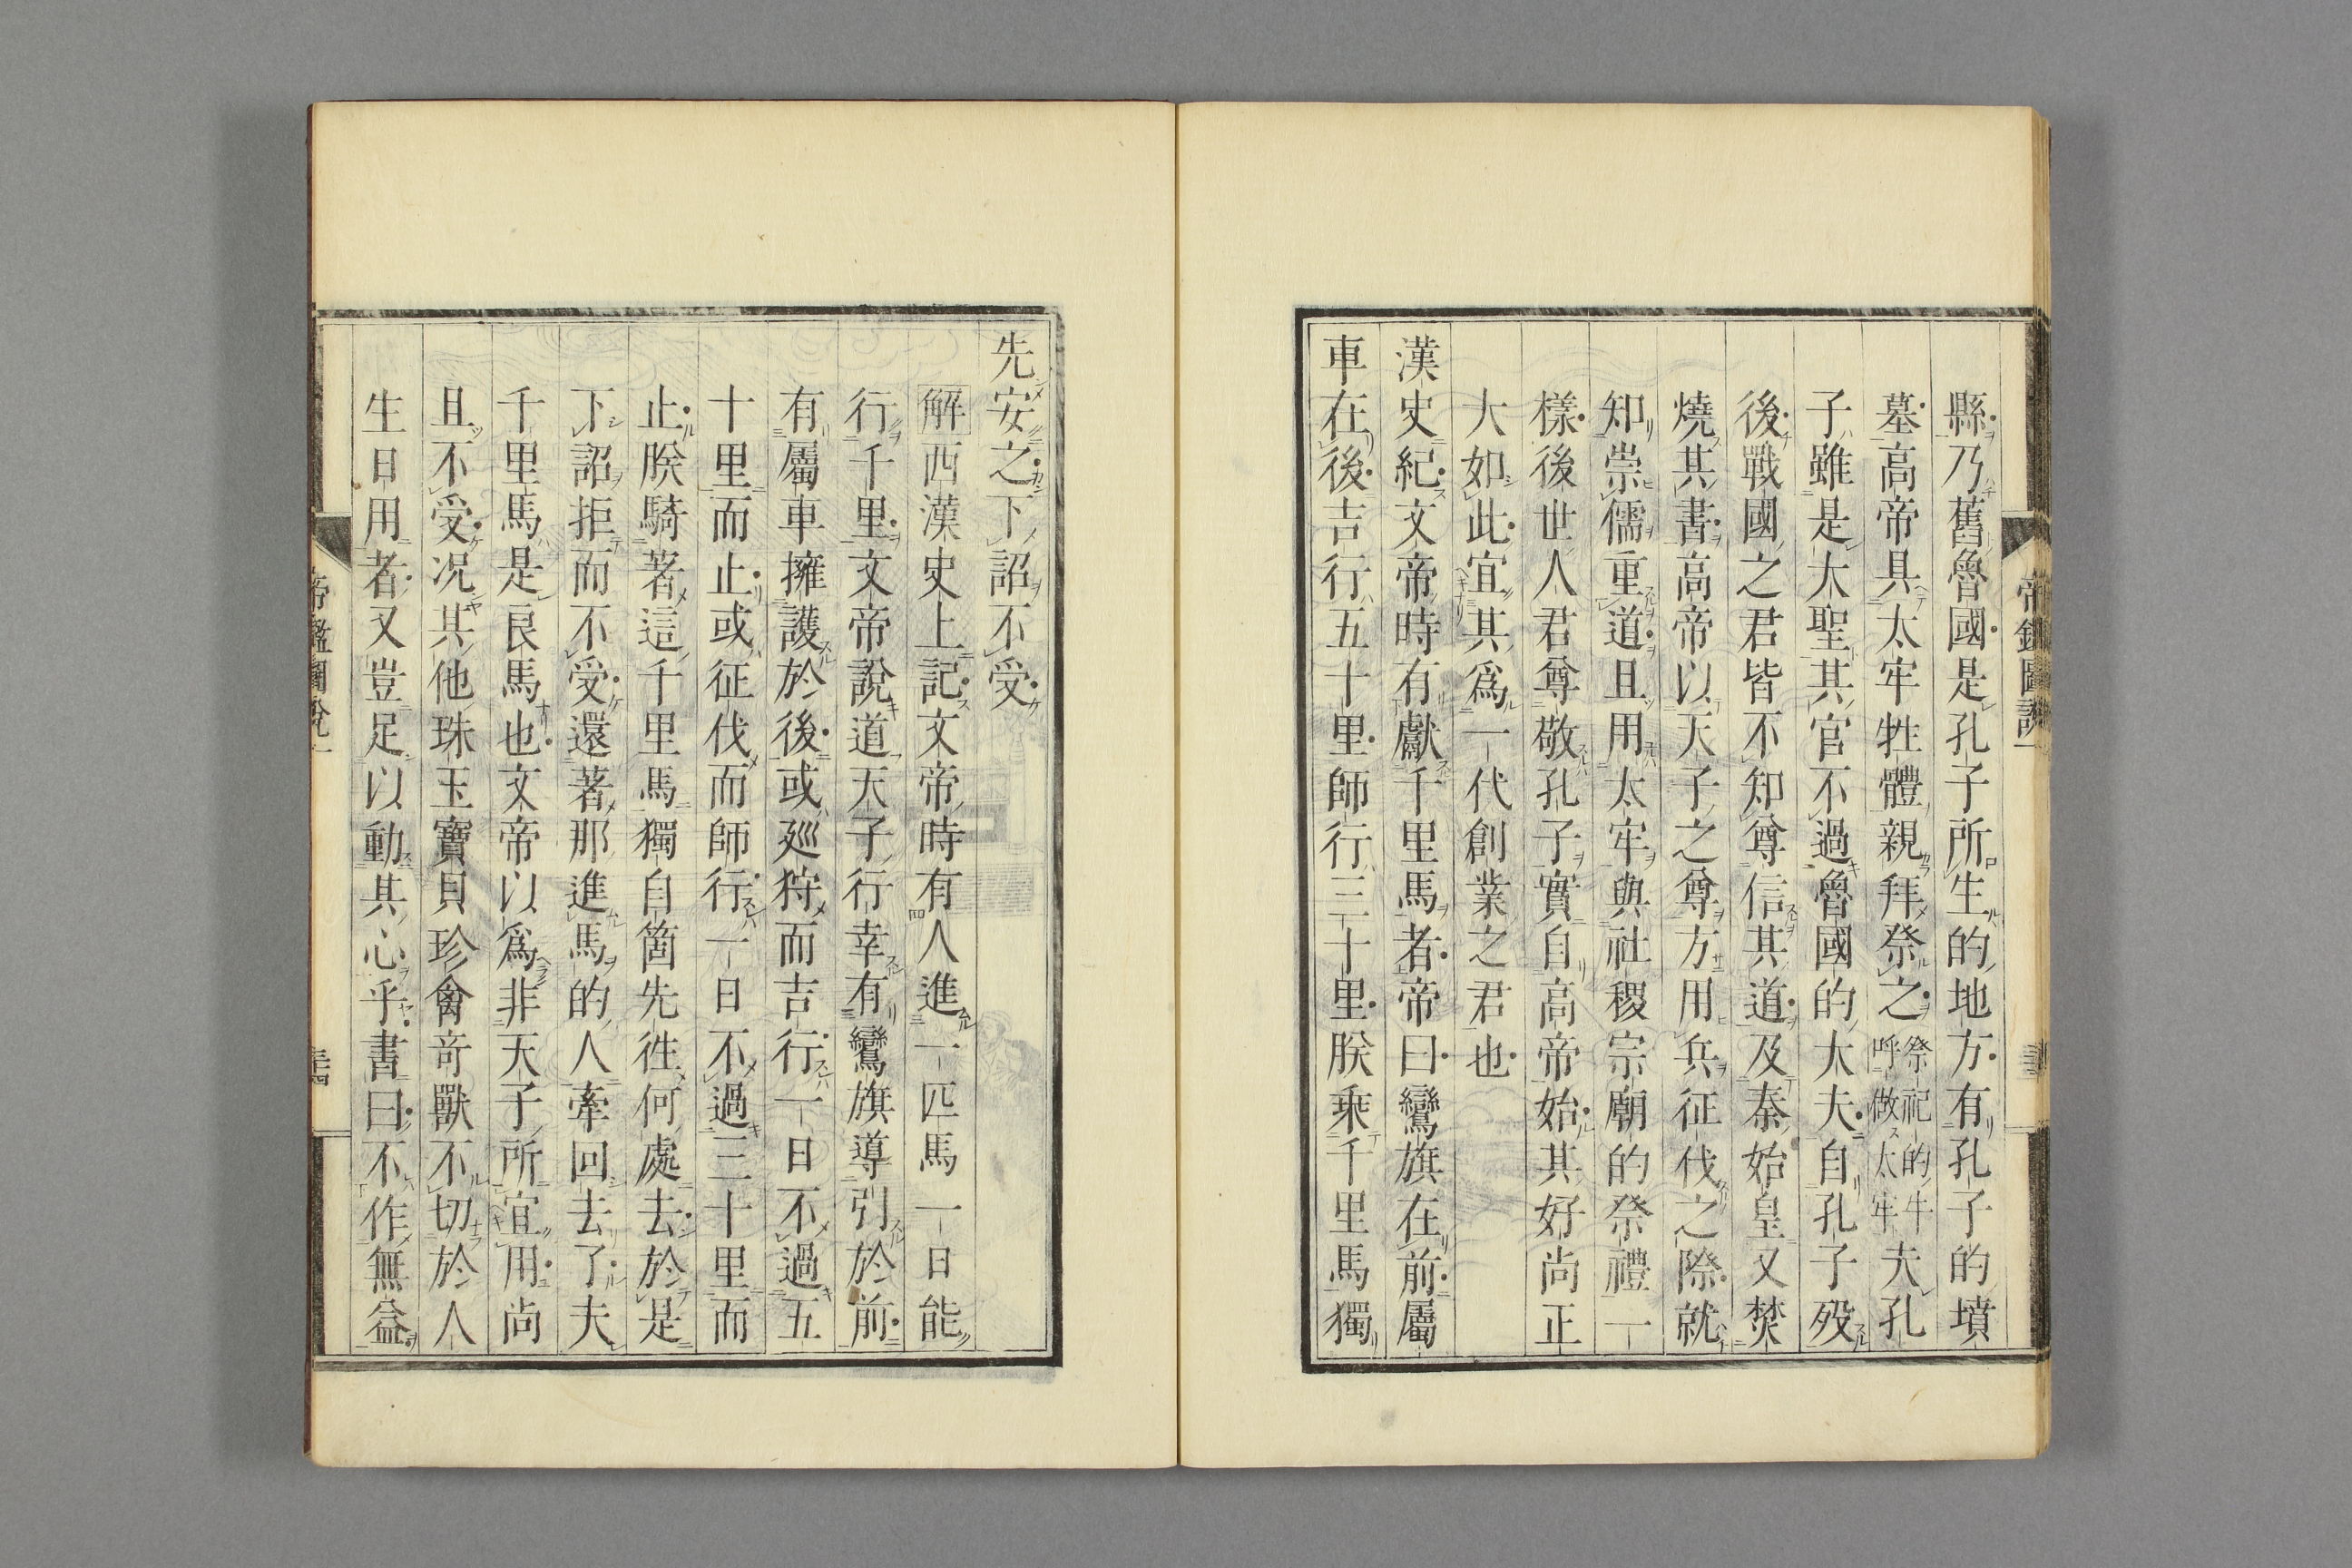 縣乃舊魯國是孔子所生的地方有孔子的墳
墓高帝具太牢牲體親拜祭之祭祀的牛呼做太牢夫孔
子雖是大聖其官不過魯國的大夫自孔子歿
後戰國之君皆不知尊信其道及秦始皇又焚
燒其書高帝以天子之尊方用兵征伐之際就
知崇儒重道且用太牢與社稷宗廟的祭禮一
樣後世人君尊敬孔子實自高帝始其好尚正
大如此宜其爲一代創業之君也
漢史紀文帝時有獻千里馬者帝曰鸞旗在前屬
車在後吉行五十里師行三十里朕乘千里馬獨
帝鑑圖說一
先安之下詔不受
解西漢史上記文帝時有人進一匹馬一日能
行千里文帝說道天子行幸有鸞旗導引於前
有屬車擁護於後或廵狩而吉行一日不過五
十里而止或征伐而師行一日不過三十里而
止朕騎著這千里馬獨自箇先徃何處去於是
下詔拒而不受還著那進馬的人牽回去了夫
千里馬是良馬也文帝以爲非天子所宜用尚
且不受况其他珠玉寶貝珍禽竒獸不切於人
生日用者又豈足以動其心乎書曰不作無益
帝鑑圖說一